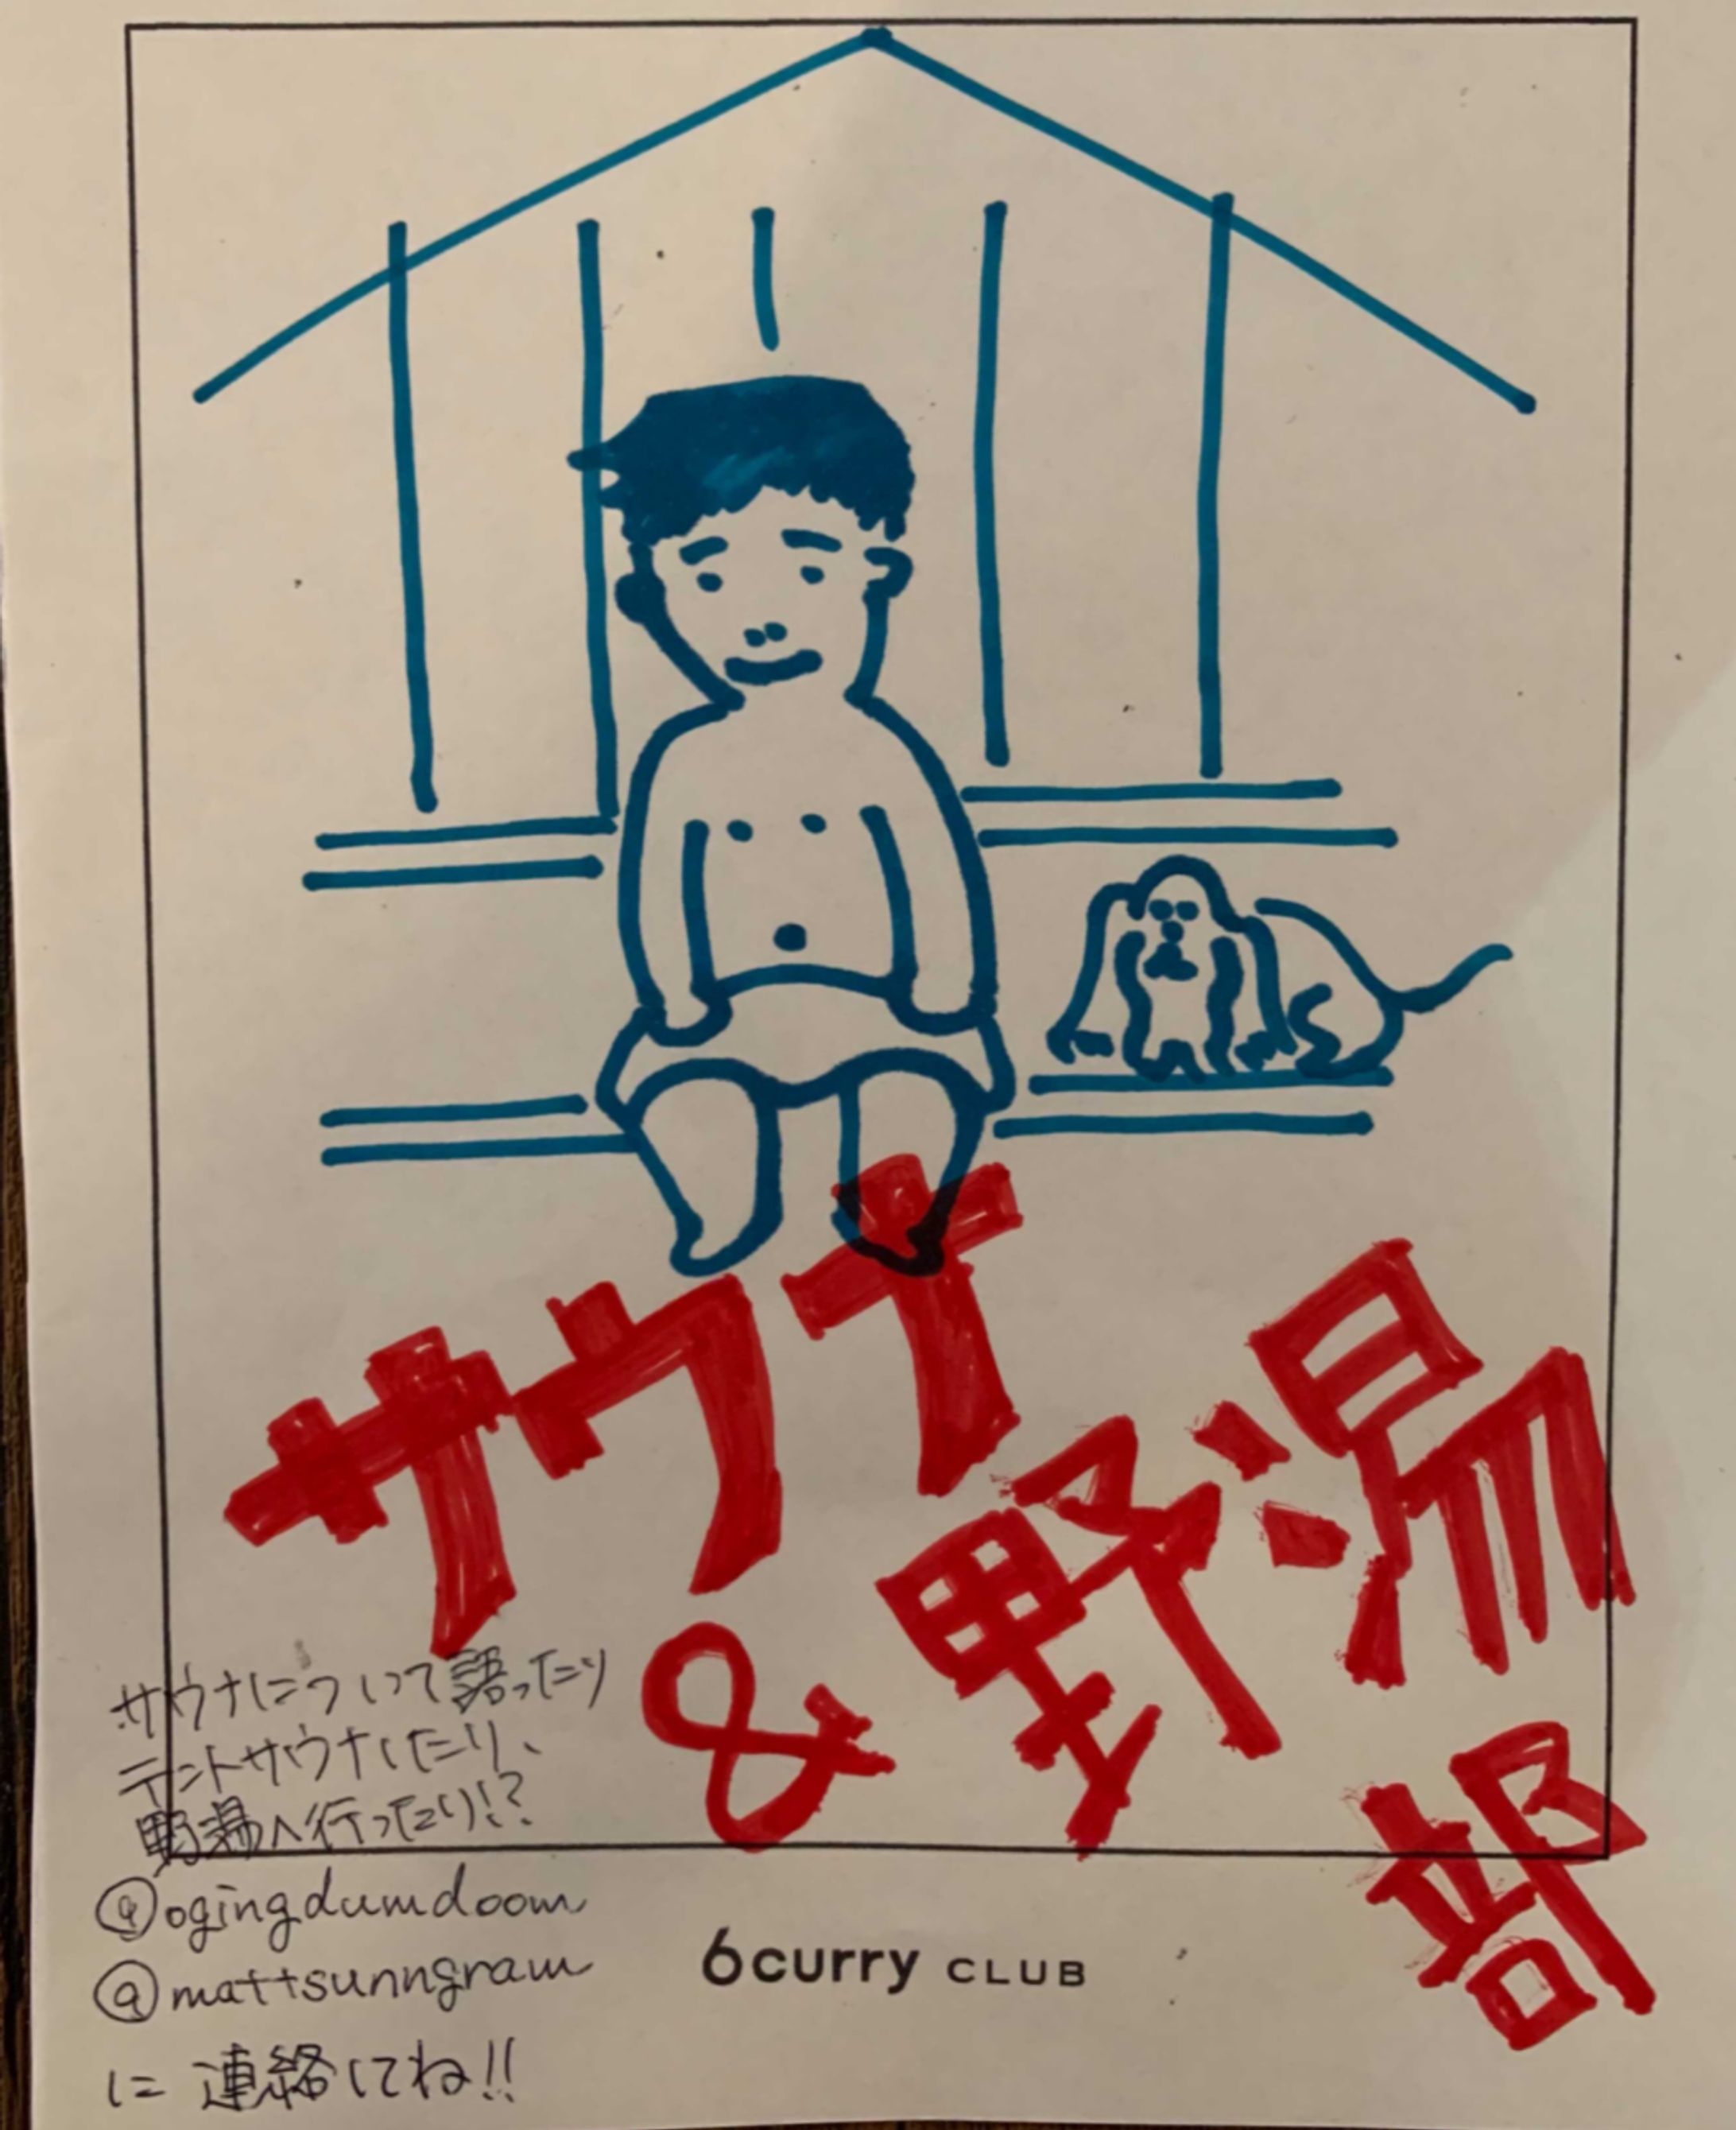 サウナ
&野湯
部
サウナについて語ったり
テントサウナしたり、
野湯へ行ったり!?
@ogingdumdoom
@mattsunngram
に連絡してね!!
6curry CLUB